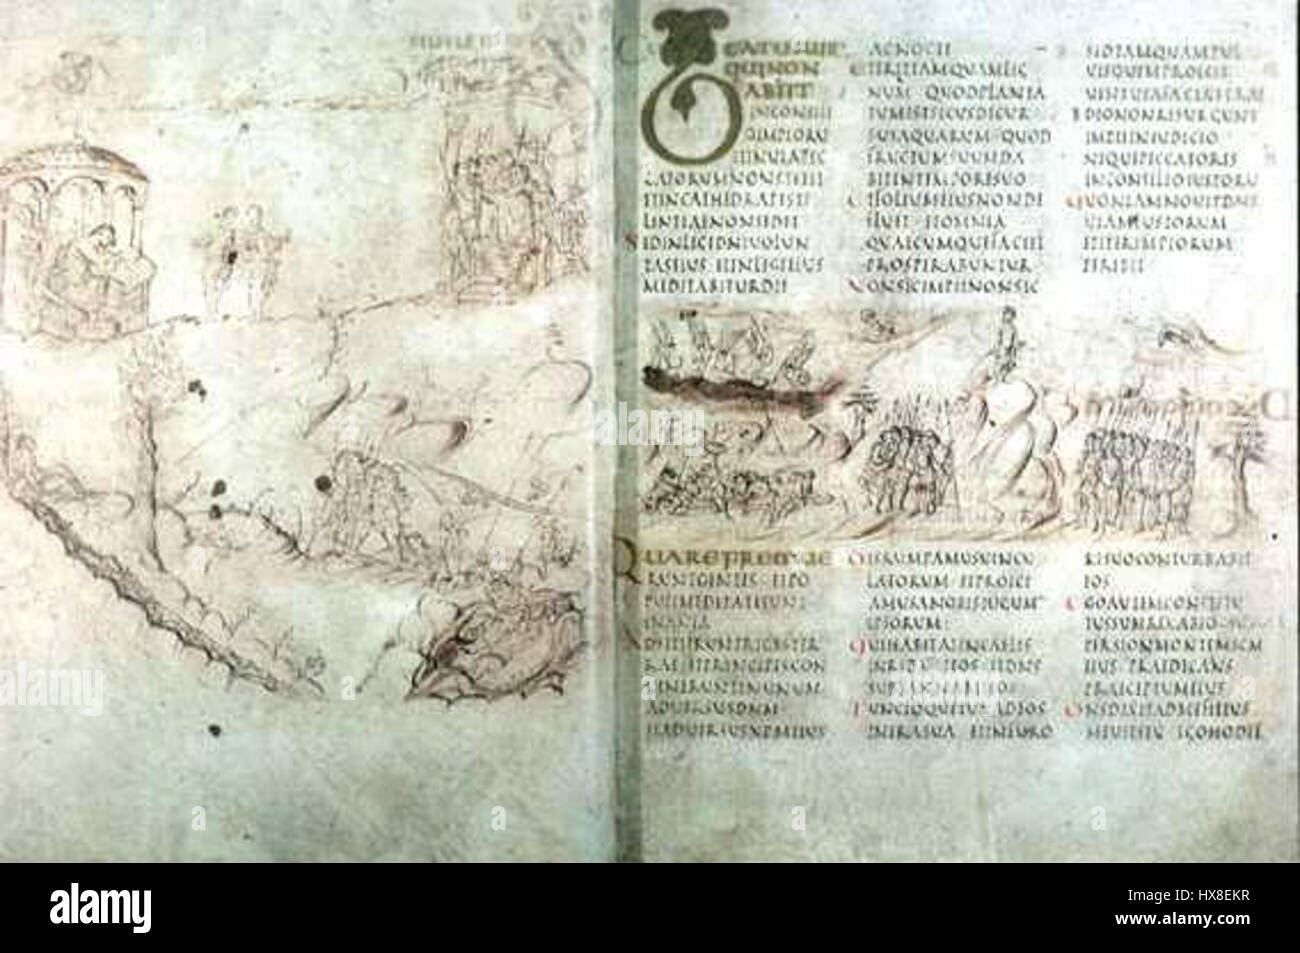 BEATUS UIR
QUI NON
ABIIT
IN CONSILI
O IMPIORU
ET IN UIA PEC
CATORUM NON STETIT
ET IN CATHEDRA PESTI
LENTIAE NON SEDIT
SED IN LEGE DNI UOLUN
TAS EIUS ET IN LEGE EIUS
MEDITABITUR DIE
AC NOCTE
ET ERIT TAMQUAM LIG
NUM QUOD PLANTA
TUM EST SECUS DECUR
SUS AQUARUM QUOD
FRUCTUM SUUM DA
BIT IN TEMPORE SUO
ET FOLIUM EIUS NON DE
FLUET ET OMNIA
QUAECUMQUE FACIET
PROSPERABUNTUR
NON SIC IMPII NON SIC
SED TAMQUAM PUL
UIS QUEM PROICIT
UENTUS A FACIE TERRAE
IDEO NON RESURGUNT
IMPII IN IUDICIO
NEQUE PECCATORES
IN CONSILIO IUSTORU
QUONIAM NOUIT DNS
UIAM IUSTORUM
ET ITER IMPIORUM
PERIBIT
QUARE FREMUE
RUNT GENTES ET PO
PULI MEDITATI SUNT
INANIA
ADSTITERUNT REGES TER
RAE ET PRINCIPES CON
UENERUNT IN UNUM
ADUERSUS DNM
ET ADUERSUS XPM EIUS
DISRUMPAMUS UINCU
LA EORUM ET PROICI
AMUS A NOBIS IUGUM
IPSORUM
QUI HABITAT IN CAELIS
INRIDEBIT EOS ET DNS
SUBSANNABIT EOS
TUNC LOQUETUR AD EOS
IN IRA SUA ET IN FURO
RE SUO CONTURBABIT
EOS
EGO AUTEM CONSTITU
TUS SUM REX AB EO SUPER
SION MONTEM SCM
EIUS PRAEDICANS
PRAECEPTUM EIUS
DNS DIXIT AD ME FILIUS
MEUS ES TU EGO HODIE
alamy
HX8EKR
www.alamy.com